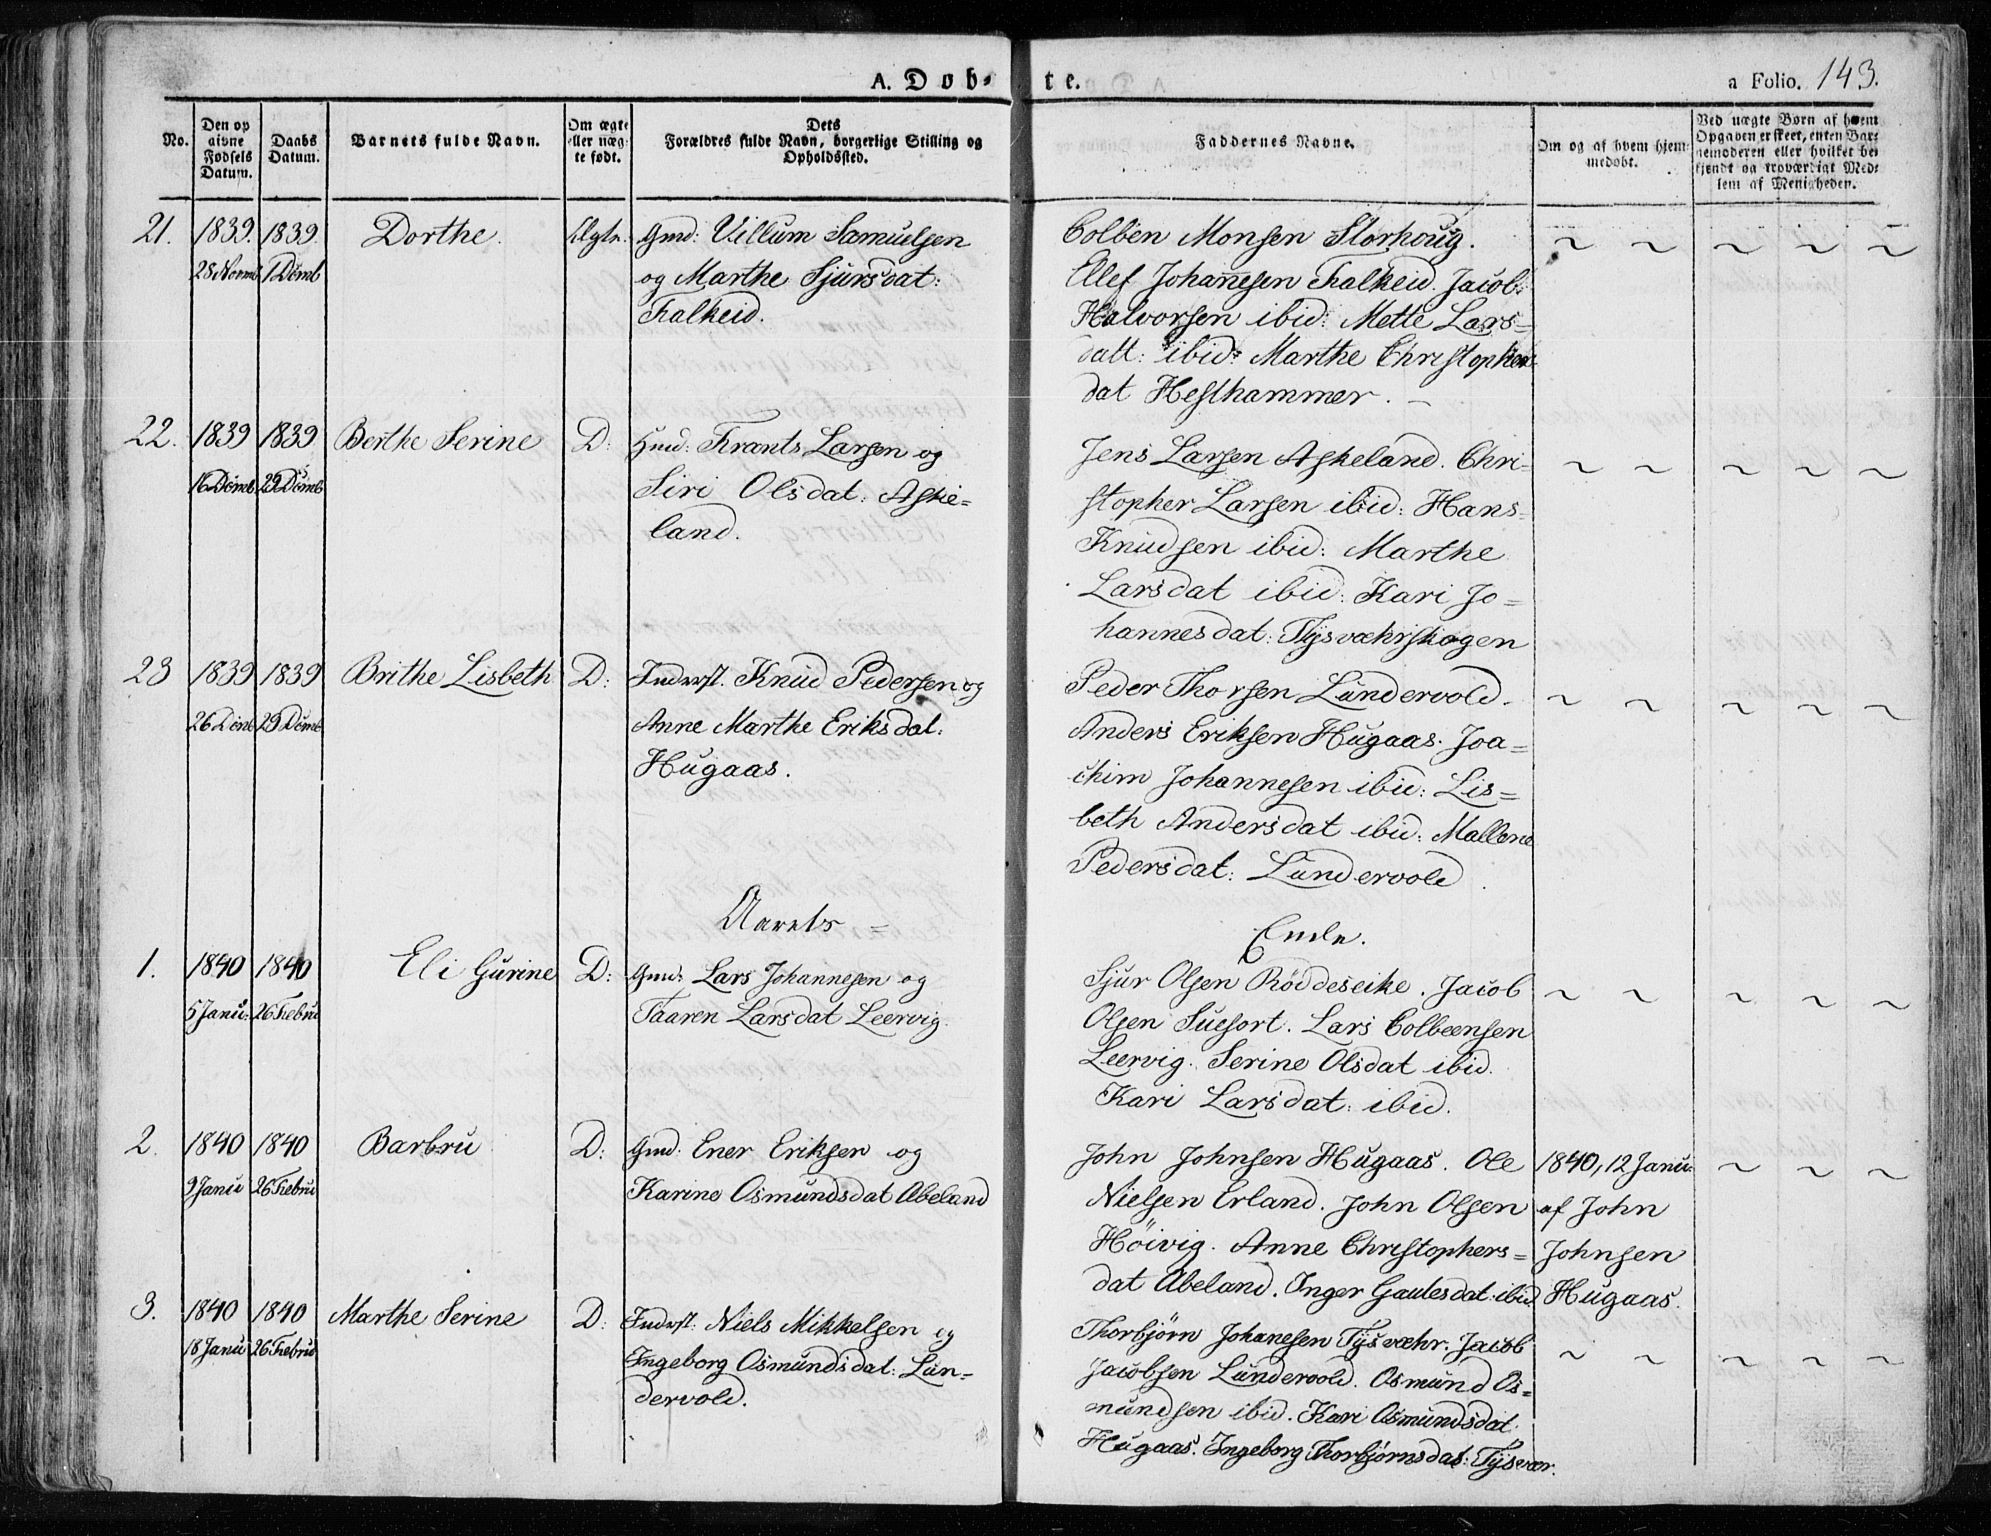 A. Døb-
te.
a Folio. 143.
No.
Den op
givne
Fødsels
Datum.
Daabs
Datum.
Barnets fulde Navn.
Om ægte
eller uæg-
te født.
Dets
Forældres fulde Navn, borgerlige Stilling og
Opholdssted.
Faddernes Navne.
Om og af hvem hjem-
medøbt.
Ved uægte Børn af hvem
Opgaven er skeet, enten Bar-
nemoderen eller hvilket be-
kjendt og troværdigt Med-
lem af Menigheden.
21.
1839.
28 Novmb
1839
1 Dëmb
Dorthe.
Ægte.
Gmd: Villum Samuelsen
og Marthe Sjursdat:
Falkeid.
Colben Monsen Storhoug.
Ellef Johannesen Falkeid. Jacob
Halvorsen ibid: Mette Lars=
datt: ibid: Marthe Christophers
dat Hesthammer.
~ ~ ~ ~ ~
22.
1839
16 Dëmb
1839
29 Dëmb
Berthe Serine
D:
Hmd: Frants Larsen og
Siri Olsdat: Aske=
land.
Jens Larsen Askeland. Chri=
stopher Larsen ibid: Hans
Knudsen ibid: Marthe
Larsdat ibid: Kari Jo=
hannesdat: Tysvæhrskogen
~ ~ ~ ~ ~
23
1839
26 Dëmb
1839
29 Dëmb
Brithe Lisbeth
D:
Inderst. Knud Pedersen og
Anne Marthe Eriksdat:
Hugaas.
Peder Thorsen Lundervold.
Anders Eriksen Hugaas. Joa=
chim Johannesen ibid: Lis=
beth Andersdat ibid: Mallene
Pedersdat: Lundervold
~ ~ ~ ~ ~
Aarets =
Ende.
1.
1840
5 Janu:
1840
26 Febru
Eli Gurine
D:
Gmd: Lars Johannesen og
Taaren Larsdat Leervig.
Sjur Olsen Röddeseike. Jacob
Olsen Suesort. Lars Colbeensen
Leervig. Serine Olsdat ibid.
Kari Larsdat: ibid.
~ ~ ~ ~ ~
2.
1840
9 Janu
1840
26 Febru
Barbru
D:
Gmd: Ener Eriksen og
Karine Osmundsdat Abeland
John Johnsen Hugaas. Ole
Nielsen Erland. John Olsen
Höivig. Anne Christophers=
dat Abeland. Inger Gautesdat ibid
1840, 12 Janu:
af John
Johnsen
Hugaas.
~ ~ ~
3.
1840
18 Janu
1840
26 Febru
Marthe Serine
D:
Inderst: Niels Mikkelsen og
Ingeborg Osmundsdat: Lun=
dervold.
Thorbjörn Johanesen Tysvæhr. Jacob
Jacobsen Lundervold. Osmund Os=
mundsen ibid. Kari Osmundsdat
Hugaas. Ingeborg Thorbjørnsdat: Tysvær.
~ ~ ~ ~ ~